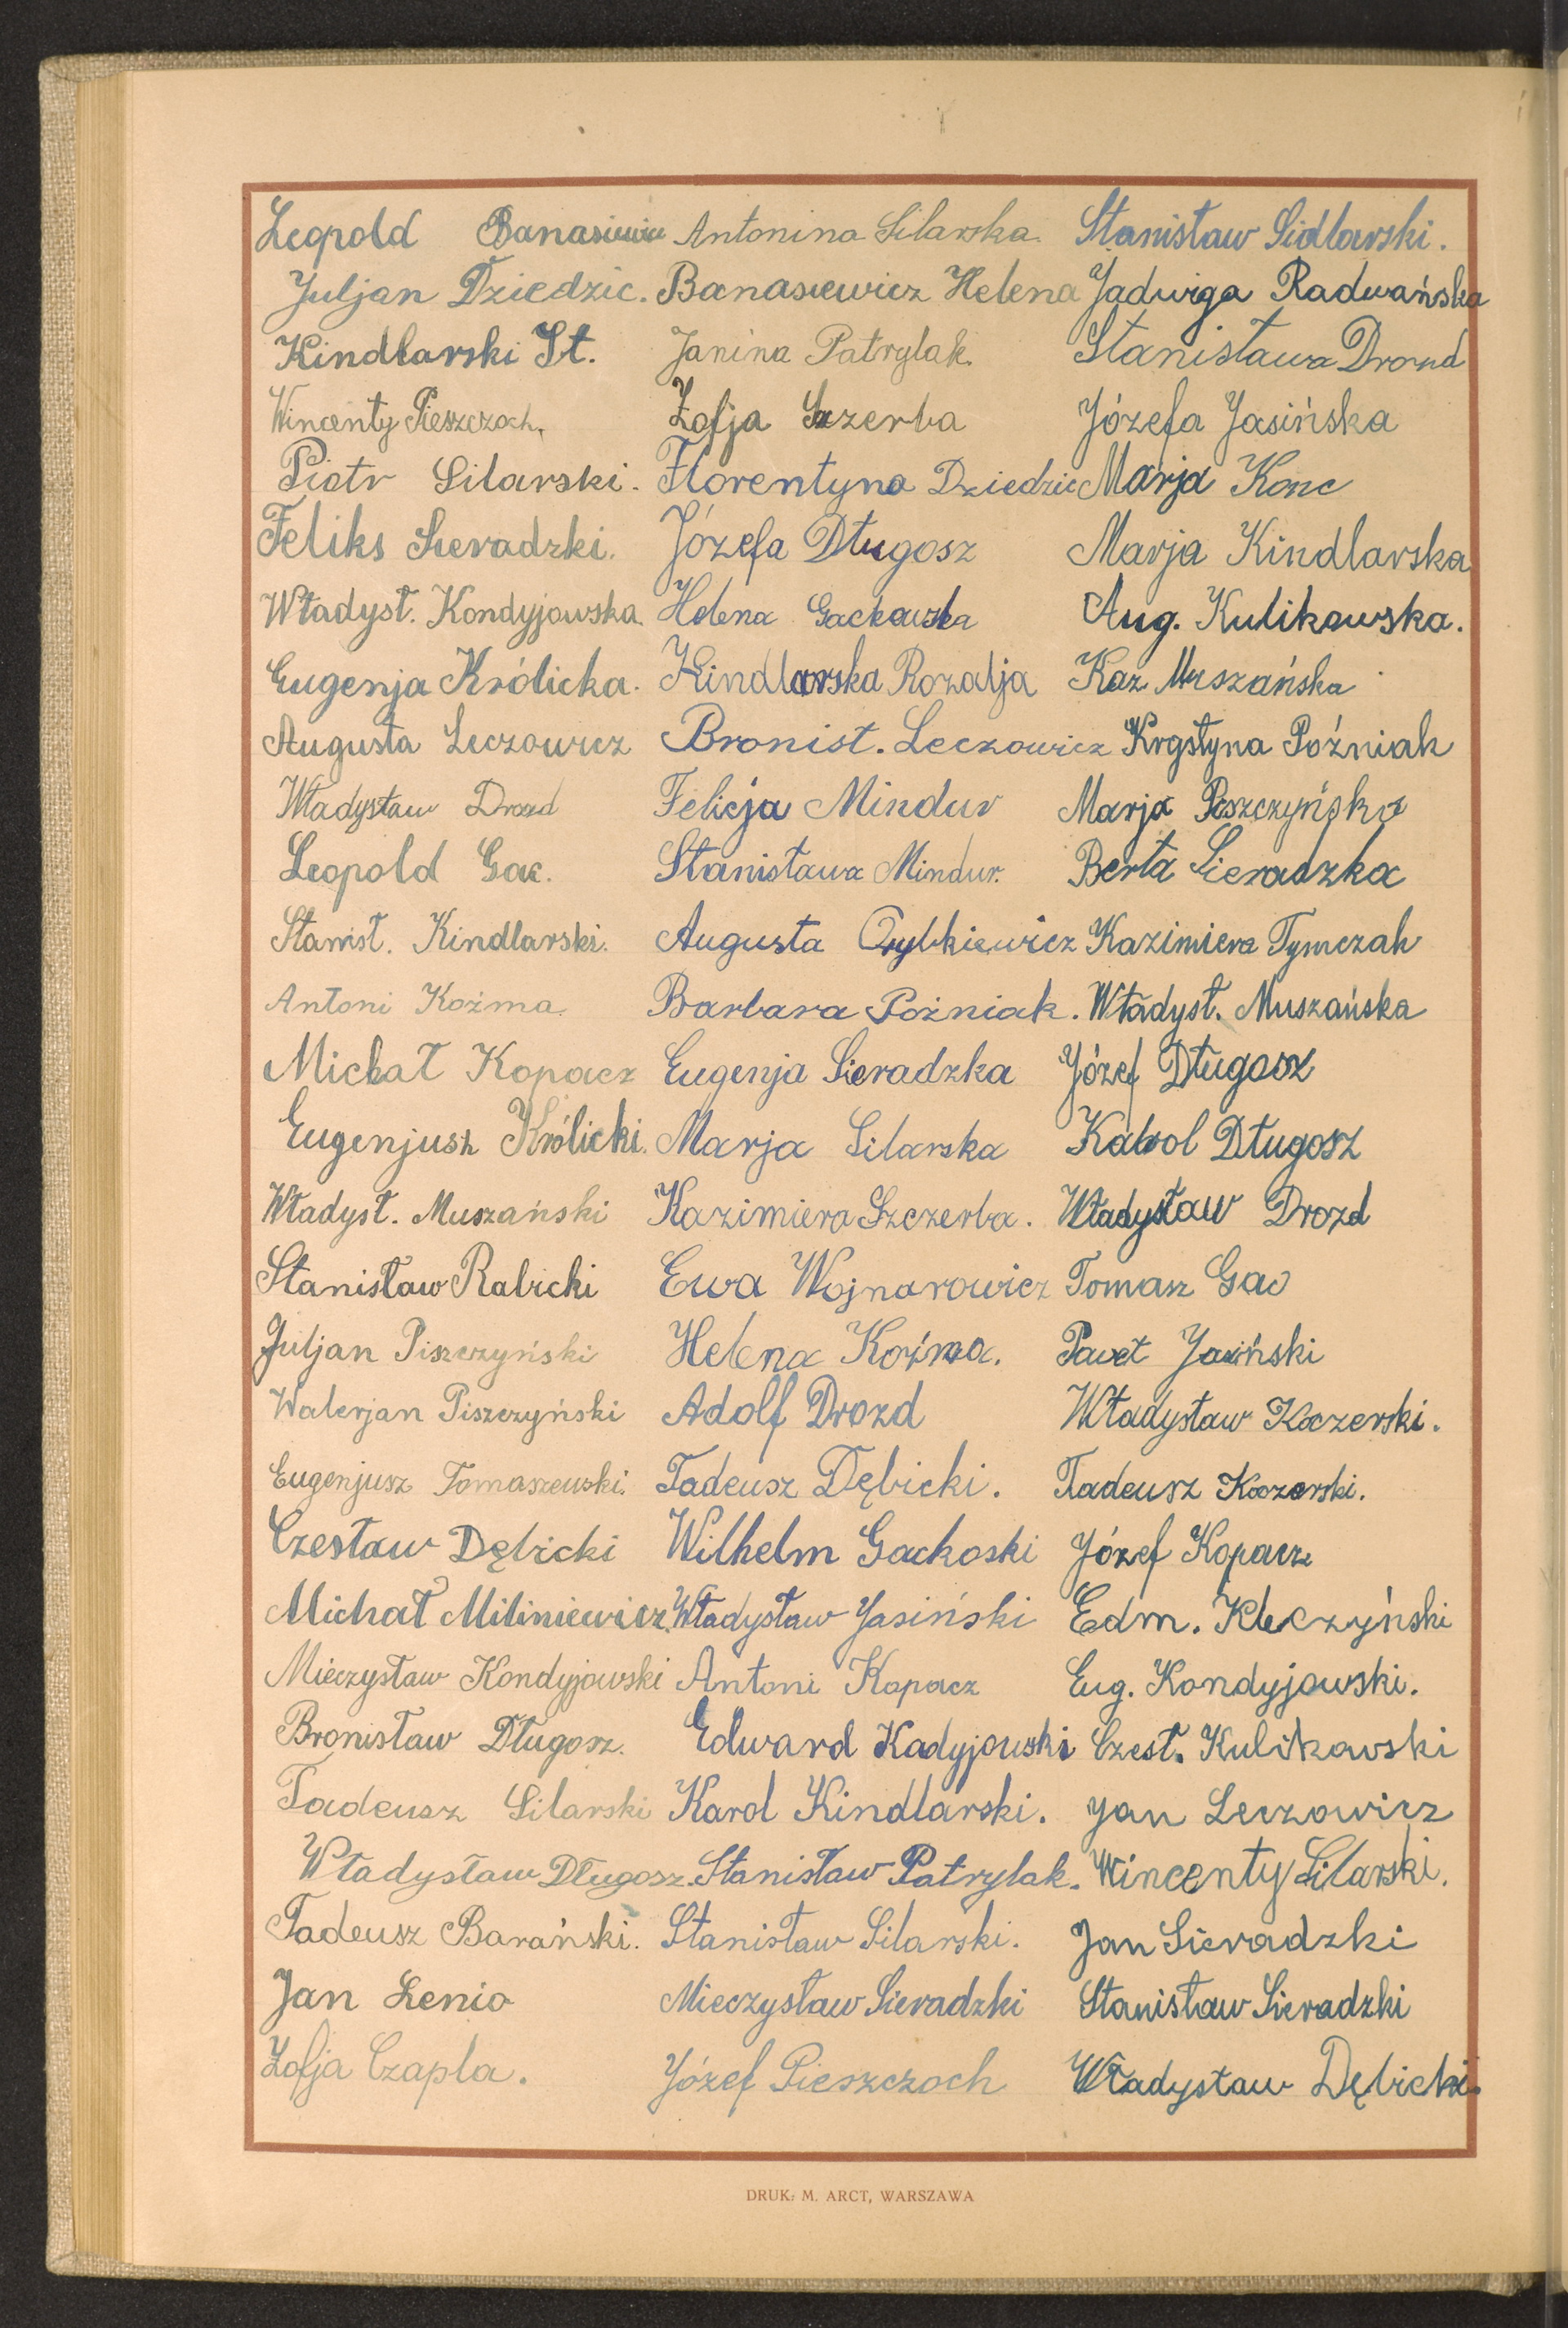 Leopold Banasiewicz Antonina Silarska. Stanisław Sidlarski.
Juljan Dziedzic. Banasiewicz Helena Jadwiga Radwańska
Kindlarski St. Janina Patrylak. Stanisława Drozd
Wincenty Pieszczoch. Zofja Szczerba Józefa Jasińska
Piotr Silarski. Florentyna Dziedzic Marja Konc
Feliks Sieradzki. Józefa Długosz Marja Kindlarska
Władysł. Kondyjowska. Helena Gackowska Aug. Kulikowska.
Eugenja Królicka. Kindlarska Rozalja Kaz. Muszańska
Augusta Leczowicz Bronisł. Leczowicz Krystyna Poźniak
Władysław Drozd Felicja Mindur Marja Piszczyńska
Leopold Gac. Stanisława Mindur. Berta Sieradzka
Stanisł. Kindlarski. Augusta Kazimiera Tymczak
Antoni Koźma. Barbara Poźniak. Władysł. Muszańska
Michał Kopacz Eugenja Sieradzka Józef Długosz
Eugenjusz Królicki. Marja Silarska Karol Długosz
Władysł. Muszański Kazimiera Szczerba. Władysław Drozd
Stanisław Rabicki Ewa Wojnarowicz Tomasz Gac
Juljan Piszczyński Helena Koźma. Paweł Jasiński
Walerjan Piszczyński Adolf Drozd Władysław Koczerski.
Eugenjusz Tomaszewski. Tadeusz Dębicki. Tadeusz Koczerski.
Czesław Dębicki Wilhelm Gackoski Józef Kopacz
Michał Miliniewicz. Władysław Jasiński Edm. Kleczyński
Mieczysław Kondyjowski Antoni Kopacz Eug. Kondyjowski.
Bronisław Długosz. Edward Kadyjowski Czesł. Kulikowski
Tadeusz Silarski Karol Kindlarski. Jan Leczowicz
Władysław Długosz. Stanisław Patrylak. Wincenty Silarski.
Tadeusz Barański. Stanisław Silarski. Jan Sieradzki
Jan Lenio Mieczysław Sieradzki Stanisław Sieradzki
Zofja Czapla. Józef Pieszczoch Władysław Dębicki.
DRUK: M. ARCT, WARSZAWA